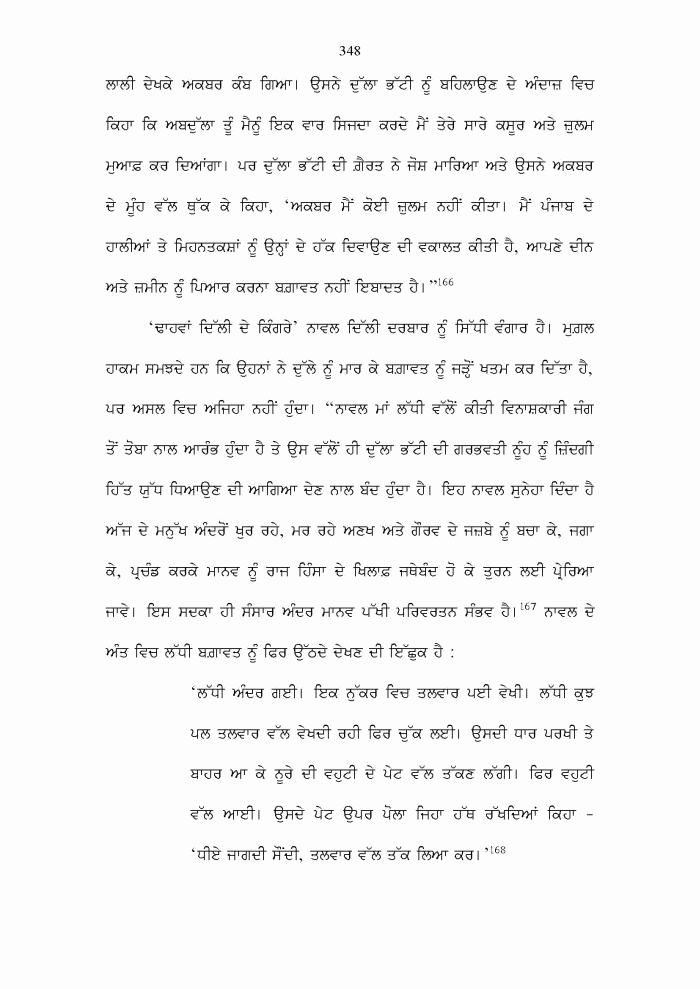 348
ਲਾਲੀ ਦੇਖਕੇ ਅਕਬਰ ਕੰਬ ਗਿਆ। ਉਸਨੇ ਦੁੱਲਾ ਭੱਟੀ ਨੂੰ ਬਹਿਲਾਉਣ ਦੇ ਅੰਦਾਜ਼ ਵਿਚ
ਕਿਹਾ ਕਿ ਅਬਦੁੱਲਾ ਤੂੰ ਮੈਨੂੰ ਇਕ ਵਾਰ ਸਿਜਦਾ ਕਰਦੇ ਮੈਂ ਤੇਰੇ ਸਾਰੇ ਕਸੂਰ ਅਤੇ ਜ਼ੁਲਮ
ਮੁਆਫ਼ ਕਰ ਦਿਆਂਗਾ। ਪਰ ਦੁੱਲਾ ਭੱਟੀ ਦੀ ਗ਼ੈਰਤ ਨੇ ਜੋਸ਼ ਮਾਰਿਆ ਅਤੇ ਉਸਨੇ ਅਕਬਰ
ਦੇ ਮੂੰਹ ਵੱਲ ਥੁੱਕ ਕੇ ਕਿਹਾ, ‘ਅਕਬਰ ਮੈਂ ਕੋਈ ਜ਼ੁਲਮ ਨਹੀਂ ਕੀਤਾ। ਮੈਂ ਪੰਜਾਬ ਦੇ
ਹਾਲੀਆਂ ਤੇ ਮਿਹਨਤਕਸ਼ਾਂ ਨੂੰ ਉਨ੍ਹਾਂ ਦੇ ਹੱਕ ਦਿਵਾਉਣ ਦੀ ਵਕਾਲਤ ਕੀਤੀ ਹੈ, ਆਪਣੇ ਦੀਨ
ਅਤੇ ਜ਼ਮੀਨ ਨੂੰ ਪਿਆਰ ਕਰਨਾ ਬਗ਼ਾਵਤ ਨਹੀਂ ਇਬਾਦਤ ਹੈ।”166
‘ਢਾਹਵਾਂ ਦਿੱਲੀ ਦੇ ਕਿੰਗਰੇ’ ਨਾਵਲ ਦਿੱਲੀ ਦਰਬਾਰ ਨੂੰ ਸਿੱਧੀ ਵੰਗਾਰ ਹੈ। ਮੁਗ਼ਲ
ਹਾਕਮ ਸਮਝਦੇ ਹਨ ਕਿ ਉਹਨਾਂ ਨੇ ਦੁੱਲੇ ਨੂੰ ਮਾਰ ਕੇ ਬਗ਼ਾਵਤ ਨੂੰ ਜੜ੍ਹੋਂ ਖਤਮ ਕਰ ਦਿੱਤਾ ਹੈ,
ਪਰ ਅਸਲ ਵਿਚ ਅਜਿਹਾ ਨਹੀਂ ਹੁੰਦਾ। “ਨਾਵਲ ਮਾਂ ਲੱਧੀ ਵੱਲੋਂ ਕੀਤੀ ਵਿਨਾਸ਼ਕਾਰੀ ਜੰਗ
ਤੋਂ ਤੋਬਾ ਨਾਲ ਆਰੰਭ ਹੁੰਦਾ ਹੈ ਤੇ ਉਸ ਵੱਲੋਂ ਹੀ ਦੁੱਲਾ ਭੱਟੀ ਦੀ ਗਰਭਵਤੀ ਨੂੰਹ ਨੂੰ ਜ਼ਿੰਦਗੀ
ਹਿੱਤ ਯੁੱਧ ਧਿਆਉਣ ਦੀ ਆਗਿਆ ਦੇਣ ਨਾਲ ਬੰਦ ਹੁੰਦਾ ਹੈ। ਇਹ ਨਾਵਲ ਸੁਨੇਹਾ ਦਿੰਦਾ ਹੈ
ਅੱਜ ਦੇ ਮਨੁੱਖ ਅੰਦਰੋਂ ਖੁਰ ਰਹੇ, ਮਰ ਰਹੇ ਅਣਖ ਅਤੇ ਗੌਰਵ ਦੇ ਜਜ਼ਬੇ ਨੂੰ ਬਚਾ ਕੇ, ਜਗਾ
ਕੇ, ਪ੍ਰਚੰਡ ਕਰਕੇ ਮਾਨਵ ਨੂੰ ਰਾਜ ਹਿੰਸਾ ਦੇ ਖਿਲਾਫ਼ ਜਥੇਬੰਦ ਹੋ ਕੇ ਤੁਰਨ ਲਈ ਪ੍ਰੇਰਿਆ
ਜਾਵੇ। ਇਸ ਸਦਕਾ ਹੀ ਸੰਸਾਰ ਅੰਦਰ ਮਾਨਵ ਪੱਖੀ ਪਰਿਵਰਤਨ ਸੰਭਵ ਹੈ।167 ਨਾਵਲ ਦੇ
ਅੰਤ ਵਿਚ ਲੱਧੀ ਬਗ਼ਾਵਤ ਨੂੰ ਫਿਰ ਉੱਠਦੇ ਦੇਖਣ ਦੀ ਇੱਛੁਕ ਹੈ :
‘ਲੱਧੀ ਅੰਦਰ ਗਈ। ਇਕ ਨੁੱਕਰ ਵਿਚ ਤਲਵਾਰ ਪਈ ਵੇਖੀ। ਲੱਧੀ ਕੁਝ
ਪਲ ਤਲਵਾਰ ਵੱਲ ਵੇਖਦੀ ਰਹੀ ਫਿਰ ਚੁੱਕ ਲਈ। ਉਸਦੀ ਧਾਰ ਪਰਖੀ ਤੇ
ਬਾਹਰ ਆ ਕੇ ਨੂਰੇ ਦੀ ਵਹੁਟੀ ਦੇ ਪੇਟ ਵੱਲ ਤੱਕਣ ਲੱਗੀ। ਫਿਰ ਵਹੁਟੀ
ਵੱਲ ਆਈ। ਉਸਦੇ ਪੇਟ ਉਪਰ ਪੋਲਾ ਜਿਹਾ ਹੱਥ ਰੱਖਦਿਆਂ ਕਿਹਾ -
‘ਧੀਏ ਜਾਗਦੀ ਸੌਂਦੀ, ਤਲਵਾਰ ਵੱਲ ਤੱਕ ਲਿਆ ਕਰ।’168